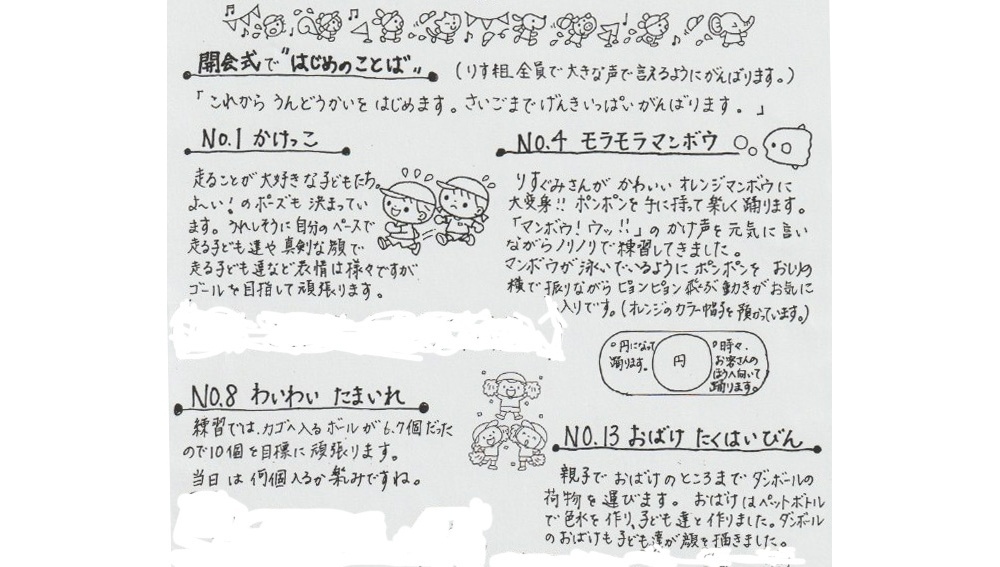 開会式で"はじめのことば" （りす組全員で大きな声で言えるようにがんばります。）
「これから うんどうかいを はじめます。さいごまでげんきいっぱいがんばります。」
No.1 かけっこ
走ることが大好きな子どもたち。
よ〜い!のポーズも決まってい
ます。うれしそうに自分のペースで
走る子ども達や真剣な顔で
走る子ども達など表情は様々ですが
ゴールを目指して頑張ります。
No.4 モラモラマンボウ
りすぐみさんが かわいい オレンジマンボウに
大変身!! ポンポンを手に持って楽しく踊ります。
「マンボウ!ウッ!!」のかけ声を元気に言い
ながらノリノリで練習してきました。
マンボウが泳いでいるようにポンポンを おしりの
横で振りながらピョンピョン飛ぶ動きがお気に
入りです。（オレンジのカラー帽子を預かっています。）
○円になって
踊ります。
円
○時々、
お客さんの
ほうへ向いて
踊ります。
No.8 わいわい たまいれ
練習では、カゴへ入るボールが6.7個だった
ので10個を目標に頑張ります。
当日は何個入るか楽しみですね。
No.13 おばけ たくはいびん
親子で おばけのところまでダンボールの
荷物を運びます。おばけはペットボトル
で色水を作り、子ども達と作りました。ダンボール
のおばけも子ども達が顔を描きました。